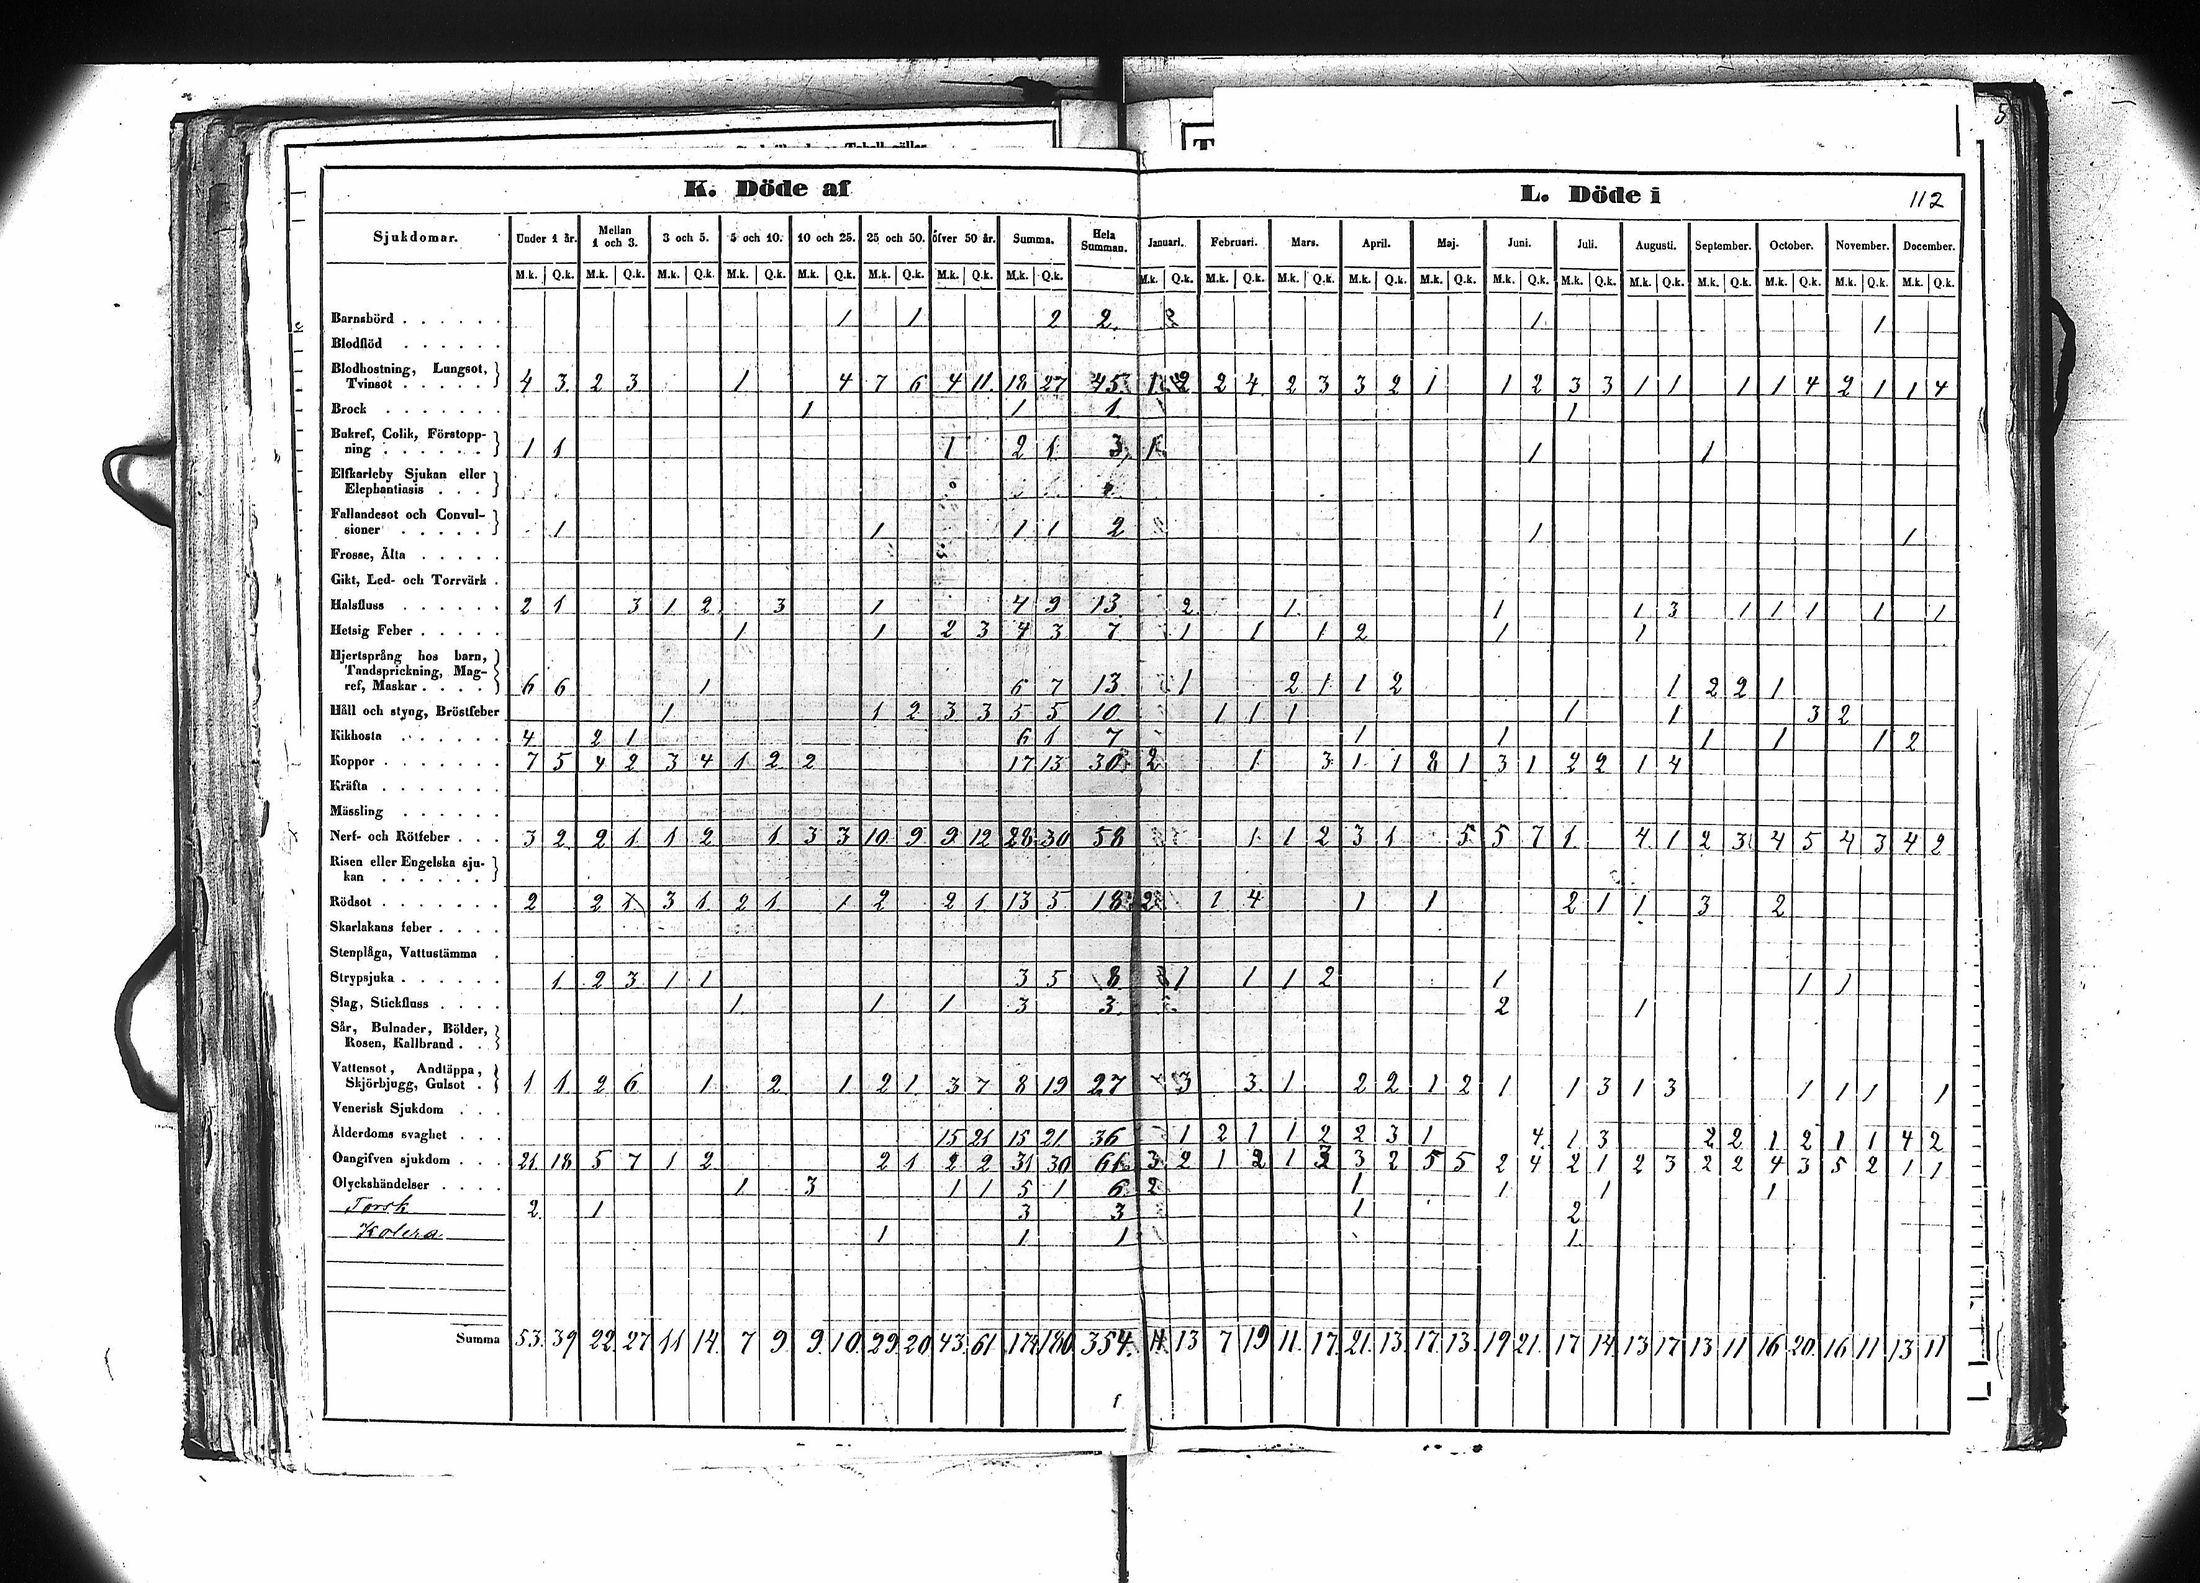 K. Döde af
L. Döde i
112
5
Sjukdomar. Under 1 år. Mellan 1 och 3. 3 och 5. 5 och 10. 10 och 25. 25 och 50. öfver 50 år. Summa. Hela Summan. Januari. Februari. Mars. April. Maj. Juni. Juli. Augusti. September. October. November. December.
M.k. Q.k. M.k. Q.k. M.k. Q.k. M.k. Q.k. M.k. Q.k. M.k. Q.k. M.k. Q.k. M.k. Q.k. M.k. Q.k. M.k. Q.k. M.k. Q.k. M.k. Q.k. M.k. Q.k. M.k. Q.k. M.k. Q.k. M.k. Q.k. M.k. Q.k. M.k. Q.k. M.k. Q.k. M.k. Q.k.
Barnsbörd 1 1 2 2 1 1
Blodflöd
Blodhostning, Lungsot,
Tvinsot 4 3 2 3 1 4 7 6 4 11 18 27 45 1 2 2 4 2 3 3 2 1 1 2 3 3 1 1 1 1 4 2 1 1 4
Brock 1 1 1 1
Bukref, Colik, Förstopp-
ning 1 1 1 2 1 3 1 1 1
Elfkarleby Sjukan eller
Elephantiasis
Fallandesot och Convul-
sioner 1 1 1 1 2 1 1
Frosse, Älta
Gikt, Led- och Torrvärk
Halsfluss 2 1 3 1 2 3 1 4 9 13 2 1 1 1 3 1 1 1 1 1
Hetsig Feber 1 1 2 3 4 3 7 1 1 1 2 1 1
Hjertsprång hos barn,
Tandsprickning, Mag-
ref, Maskar 6 6 1 6 7 13 1 2 1 1 2 1 2 2 1
Håll och styng, Bröstfeber 1 1 2 3 3 5 5 10 1 1 1 1 1 3 2
Kikhosta 4 2 1 6 1 7 1 1 1 1 1 2
Koppor 7 5 4 2 3 4 1 2 2 17 13 30 2 1 3 1 1 8 1 3 1 2 2 1 4
Kräfta
Mässling
Nerf- och Rötfeber 3 2 2 1 1 2 1 3 3 10 9 9 12 28 30 58 1 1 2 3 1 5 5 7 1 4 1 2 3 4 5 4 3 4 2
Risen eller Engelska sju-
kan
Rödsot 2 2 1 3 1 2 1 1 2 2 1 13 5 18 2 1 4 1 1 2 1 1 3 2
Skarlakans feber
Stenplåga, Vattustämma
Strypsjuka 1 2 3 1 1 3 5 8 1 1 1 2 1 1 1
Slag, Stickfluss 1 1 1 3 3 2 1
Sår, Bulnader, Bölder,
Rosen, Kallbrand
Vattensot, Andtäppa,
Skjörbjugg, Gulsot 1 1 2 6 1 2 1 2 1 3 7 8 19 27 3 3 1 2 2 1 2 1 1 3 1 3 1 1 1 1
Venerisk Sjukdom
Ålderdoms svaghet 15 21 15 21 36 1 2 1 1 2 2 3 1 4 1 3 2 2 1 2 1 1 4 2
Oangifven sjukdom 21 18 5 7 1 2 2 1 2 2 31 30 61 3 2 1 2 1 3 3 2 5 5 2 4 2 1 2 3 2 2 4 3 5 2 1 1
Olyckshändelser 1 3 1 1 5 1 6 2 1 1 1 1
Torsk 2 1 3 3 1 2
Kolera 1 1 1 1
Summa 53 39 22 27 11 14 7 9 9 10 29 20 43 61 174 180 354 11 13 7 19 11 17 21 13 17 13 19 21 17 14 13 17 13 11 16 20 16 11 13 11